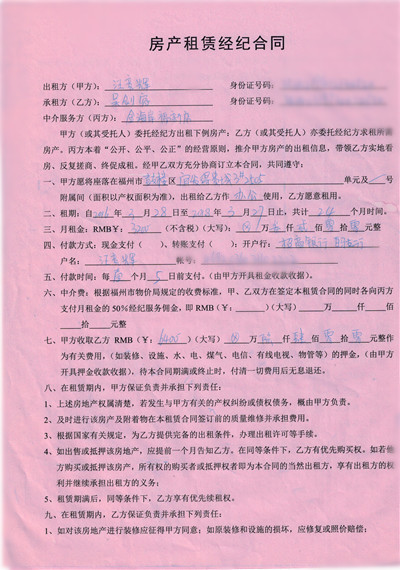 房产租赁经纪合同
出租方（甲方）： 身份证号码：
承租方（乙方）： 身份证号码：
中介服务方（丙方）：
甲方（或其受托人）委托经纪方出租下例房产；乙方（或其受托人）亦委托经纪方求租所需
房产。丙方本着“公开、公平、公正”的经营原则，推介甲方房产的出租信息，带领乙方实地看
房、反复搓商、终促成租。经甲乙双方充分协商订立本合同，共同遵守：
一、甲方愿将座落在福州市 区 单元及 号
附属间（面积以产权面积为准），出租给乙方作 办公 使用，乙方愿意租用。
二、租期：自2016年3月28日至2018年3月27日止，共计24个月时间。
三、月租金：RMB￥：3200（不含税）（大写）： 万叁仟贰佰零拾零元整
四、付款方式：现金支付（ ）、转账支付（ ）：开户行：招商银行
户名： 帐号：
五、付款时间：每 个月5日前支付。（由甲方开具租金收款收据）。
六、中介费：根据福州市物价局规定的收费标准，甲、乙双方在签定本租赁合同的同时各向丙方
支付月租金的50%经纪服务佣金，即 RMB（￥： ）（大写） 万 仟 佰
拾 元整
七、甲方收取乙方 RMB（￥：6400）（大写） 万陆仟肆佰零拾零元整作
为有关费用，（如装修、设施、水、电、煤气、电信、有线电视、物管等）的押金，（由甲方
开具押金收款收据）。待本合同期满或终止时，付清一切费用后无息退还。
八、在租赁期内，甲方保证负责并承担下列责任：
1、上述房地产权属清楚，若发生与甲方有关的产权纠纷或债权债务，概由甲方负责。
2、及时进行该房产及附着物在本租赁合同签订前的质量维修并承担费用。
3、根据国家有关规定，为乙方提供完备的出租条件，办理出租许可等手续。
4、如出售或抵押该房地产，应提前一个月告知乙方。在同等条件下，乙方有优先购买权。如若他
方购买或抵押该房产，所有权的购买者或抵押权者即为本合同的当然出租方，享有出租方的权
利并继续承担出租方的义务；
5、租赁期满后，同等条件下，乙方享有优先续租权。
九、在租赁期内，乙方保证负责并承担下列责任：
1、如对该房地产进行装修应征得甲方同意；如原装修和设施的损坏，应修复或照价赔偿；